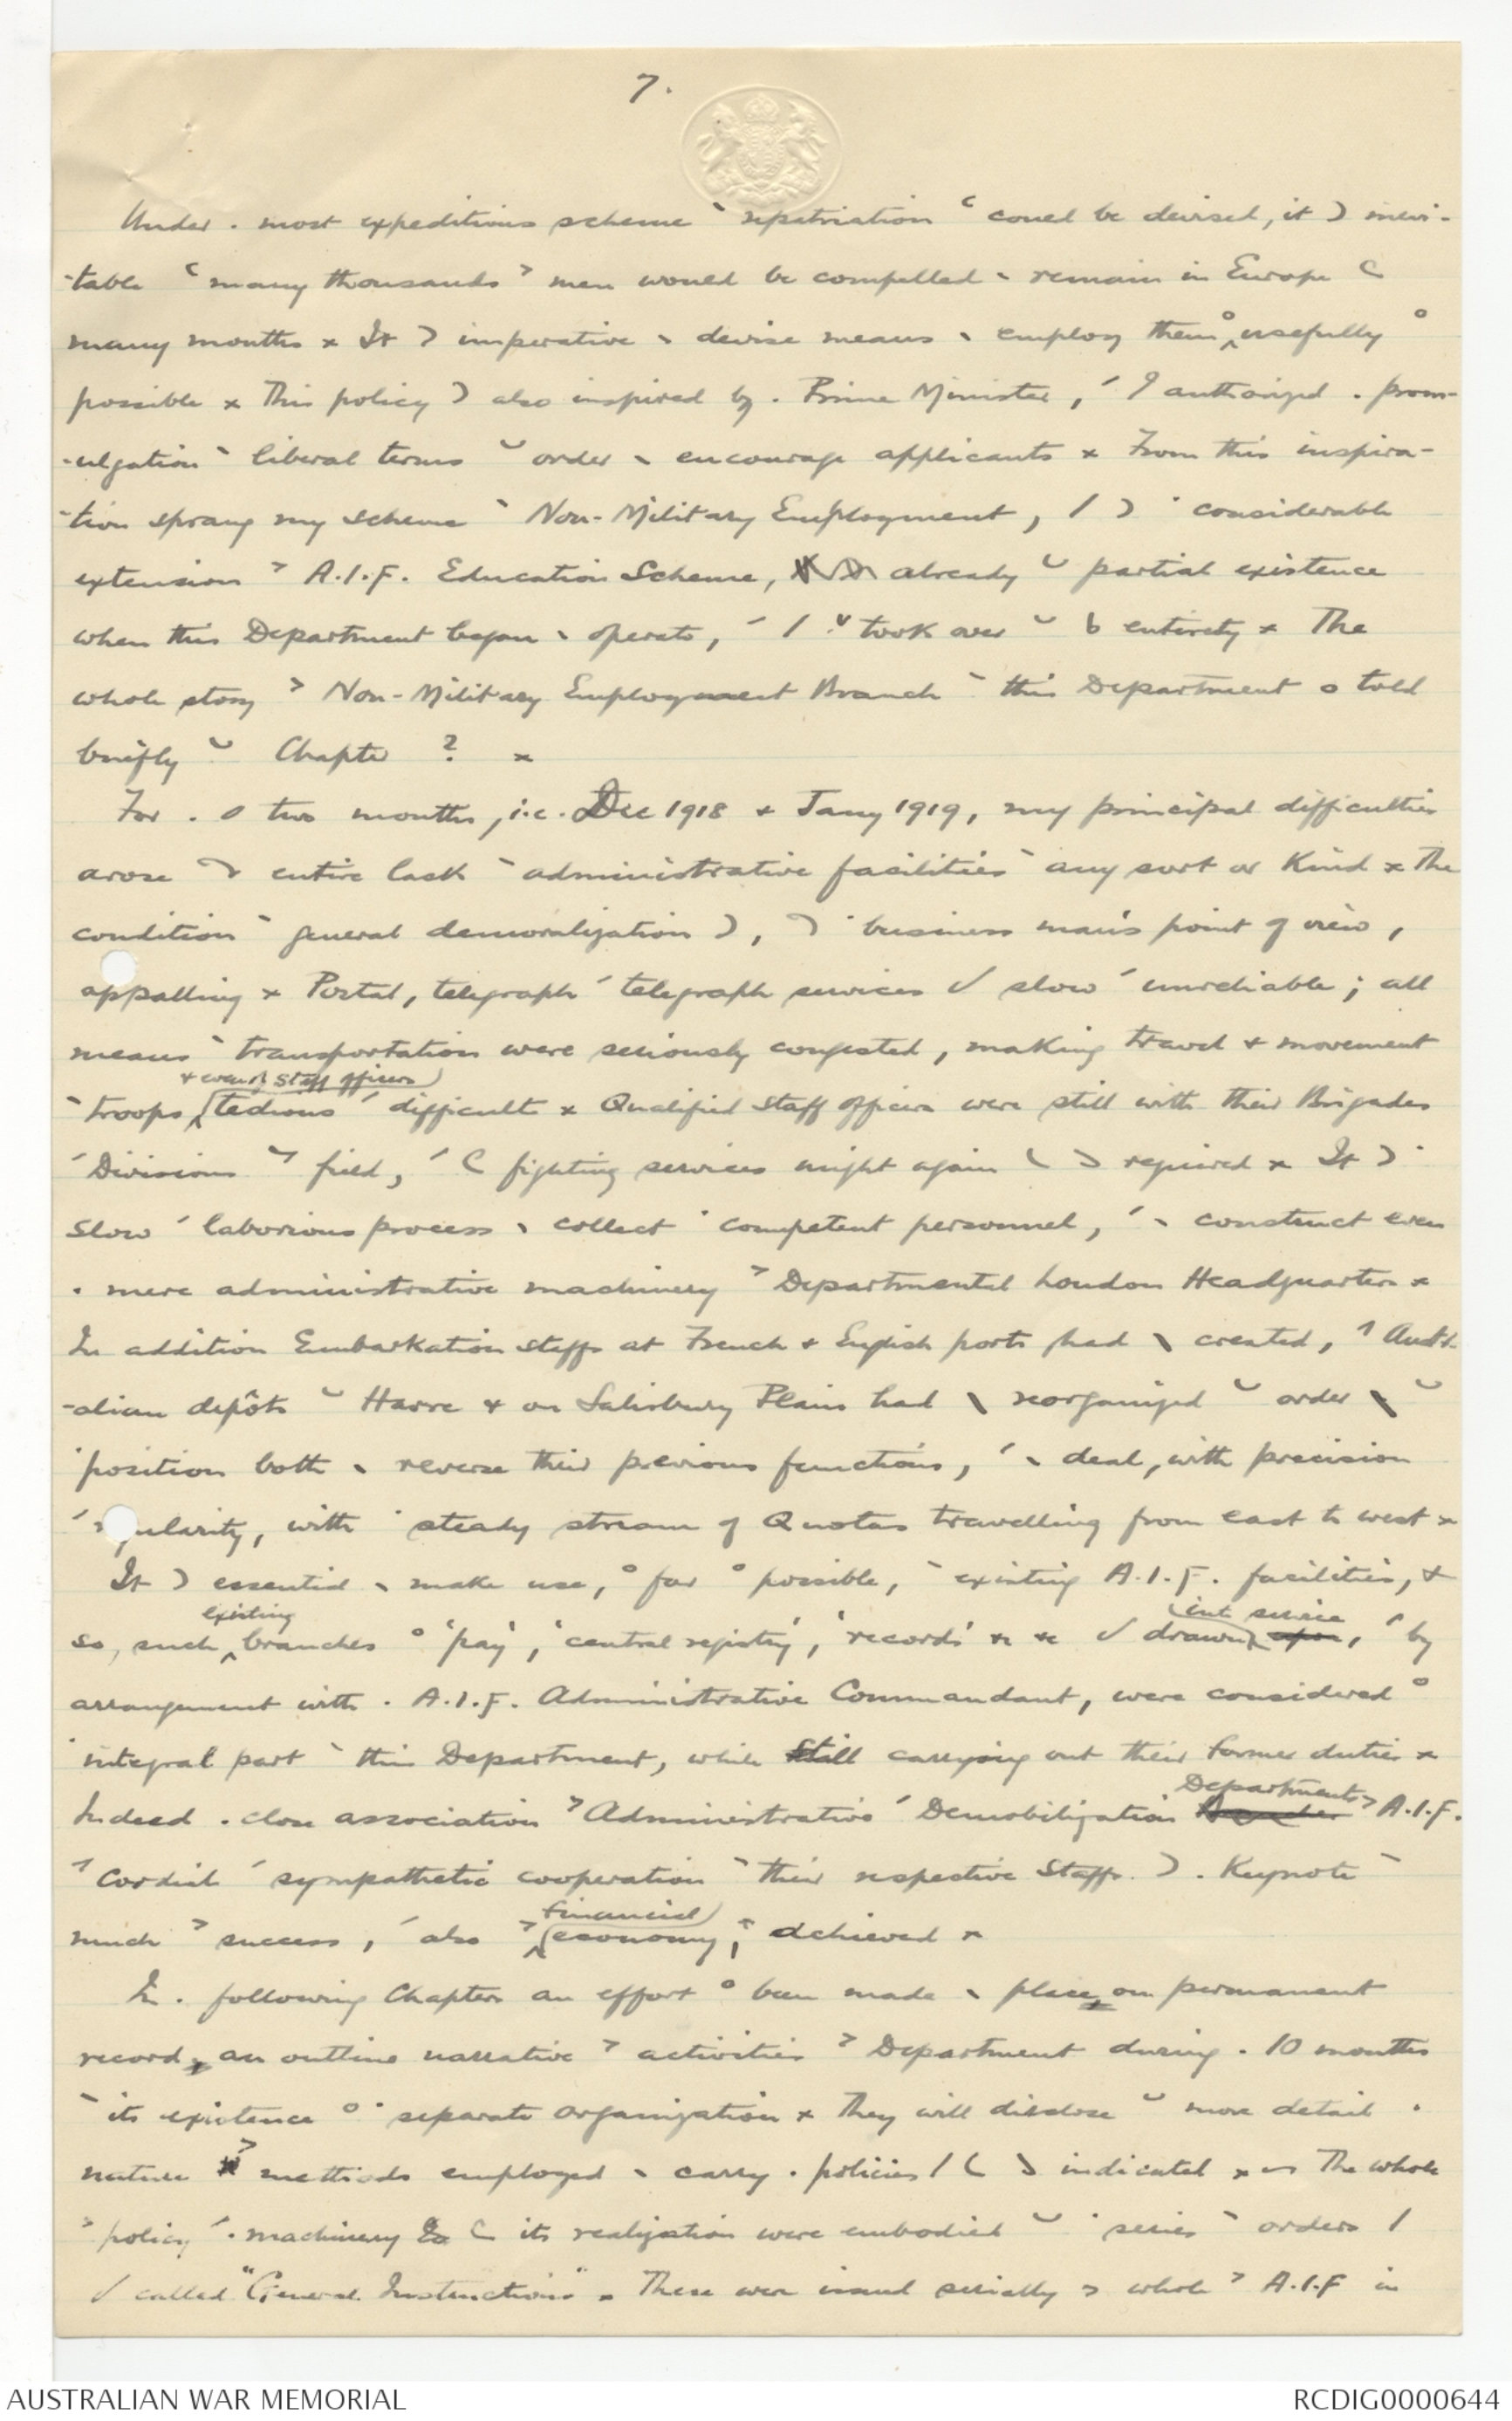 7.
Under . most expeditious scheme ` repatriation ‘ could be devised, it ) inevi-
-table ‘ many thousands > men would be compelled ` remain in Europe C
many months x It ) imperative ` devise means ` employ them ° usefully °
possible x This policy ) also inspired by . Prime Minister, ´ ) authorized . prom-
-ulgation ` liberal terms ˘ order ` encourage applicants x From this inspira-
-tion sprang my scheme ` Non-Military Employment, / ) ˙ considerable
extension > A.I.F. Education Scheme, already ˘ partial existence
when this Department began ` operate, ´ / took over ˘ b entirety x The
whole story > Non-Military Employment Branch ` this Department o told
briefly ˘ Chapter ? x
For . o two months, i.e. Dec 1918 + Jany 1919, my principal difficulties
arose entire lack ` administrative facilities ` any sort or kind x The
condition ` general demoralization ), ˙ business man's point of view,
appalling x Postal, telegraph ´ telegraph services √ slow ´ unreliable ; all
means ` transportation were seriously congested, making travel + movement
+ even of staff officers
` troops tedious ´ difficult x Qualified Staff Officers were still with their Brigades
´ Divisions field, ´ C fighting services might again ( ) required x It ) ˙
slow ´ laborious process ` collect ˙ competent personnel, ´ ` construct even
. mere administrative machinery > Departmental London Headquarters x
In addition Embarkation staffs at French + English ports had \ created, ´ Austr-
-alian depôts ˘ Havre + on Salisbury Plain had \ reorganized ˘ order \ ˘
˙ position both ` reverse their previous functions, ´ ` deal, with precision
´ regularity, with ˙ steady stream of Quotas travelling from east to west x
It ) essential ` make use, ° far ° possible, ` existing A.I.F. facilities, +
existing into service
so, such branches ° 'pay', 'central registry', 'records' &c &c √ drawn upon, ´ by
arrangement with . A.I.F. Administrative Commandant, were considered °
˙ integral part ` this Department, while still carrying out their former duties x
Departments
Indeed . close association > Administrative ´ Demobilization > A.I.F.
´ cordial ´ sympathetic cooperation ` their respective Staffs ) . Keynote `
financial
much > success, ´ also > economy, achieved x
In . following Chapters an effort ° been made ` place, on permanent
record, an outline narrative > activities > Department during . 10 months
` its existence ° ˙ separate organization x They will disclose ˘ more detail .
nature > methods employed ` carry . policies / ( ) indicated x The whole
> policy ´ . machinery C its realization were embodied ˘ ˙ series ` orders /
√ called "General Instructions" x These were issued serially > whole > A.I.F in
AUSTRALIAN WAR MEMORIAL
RCDIG0000644